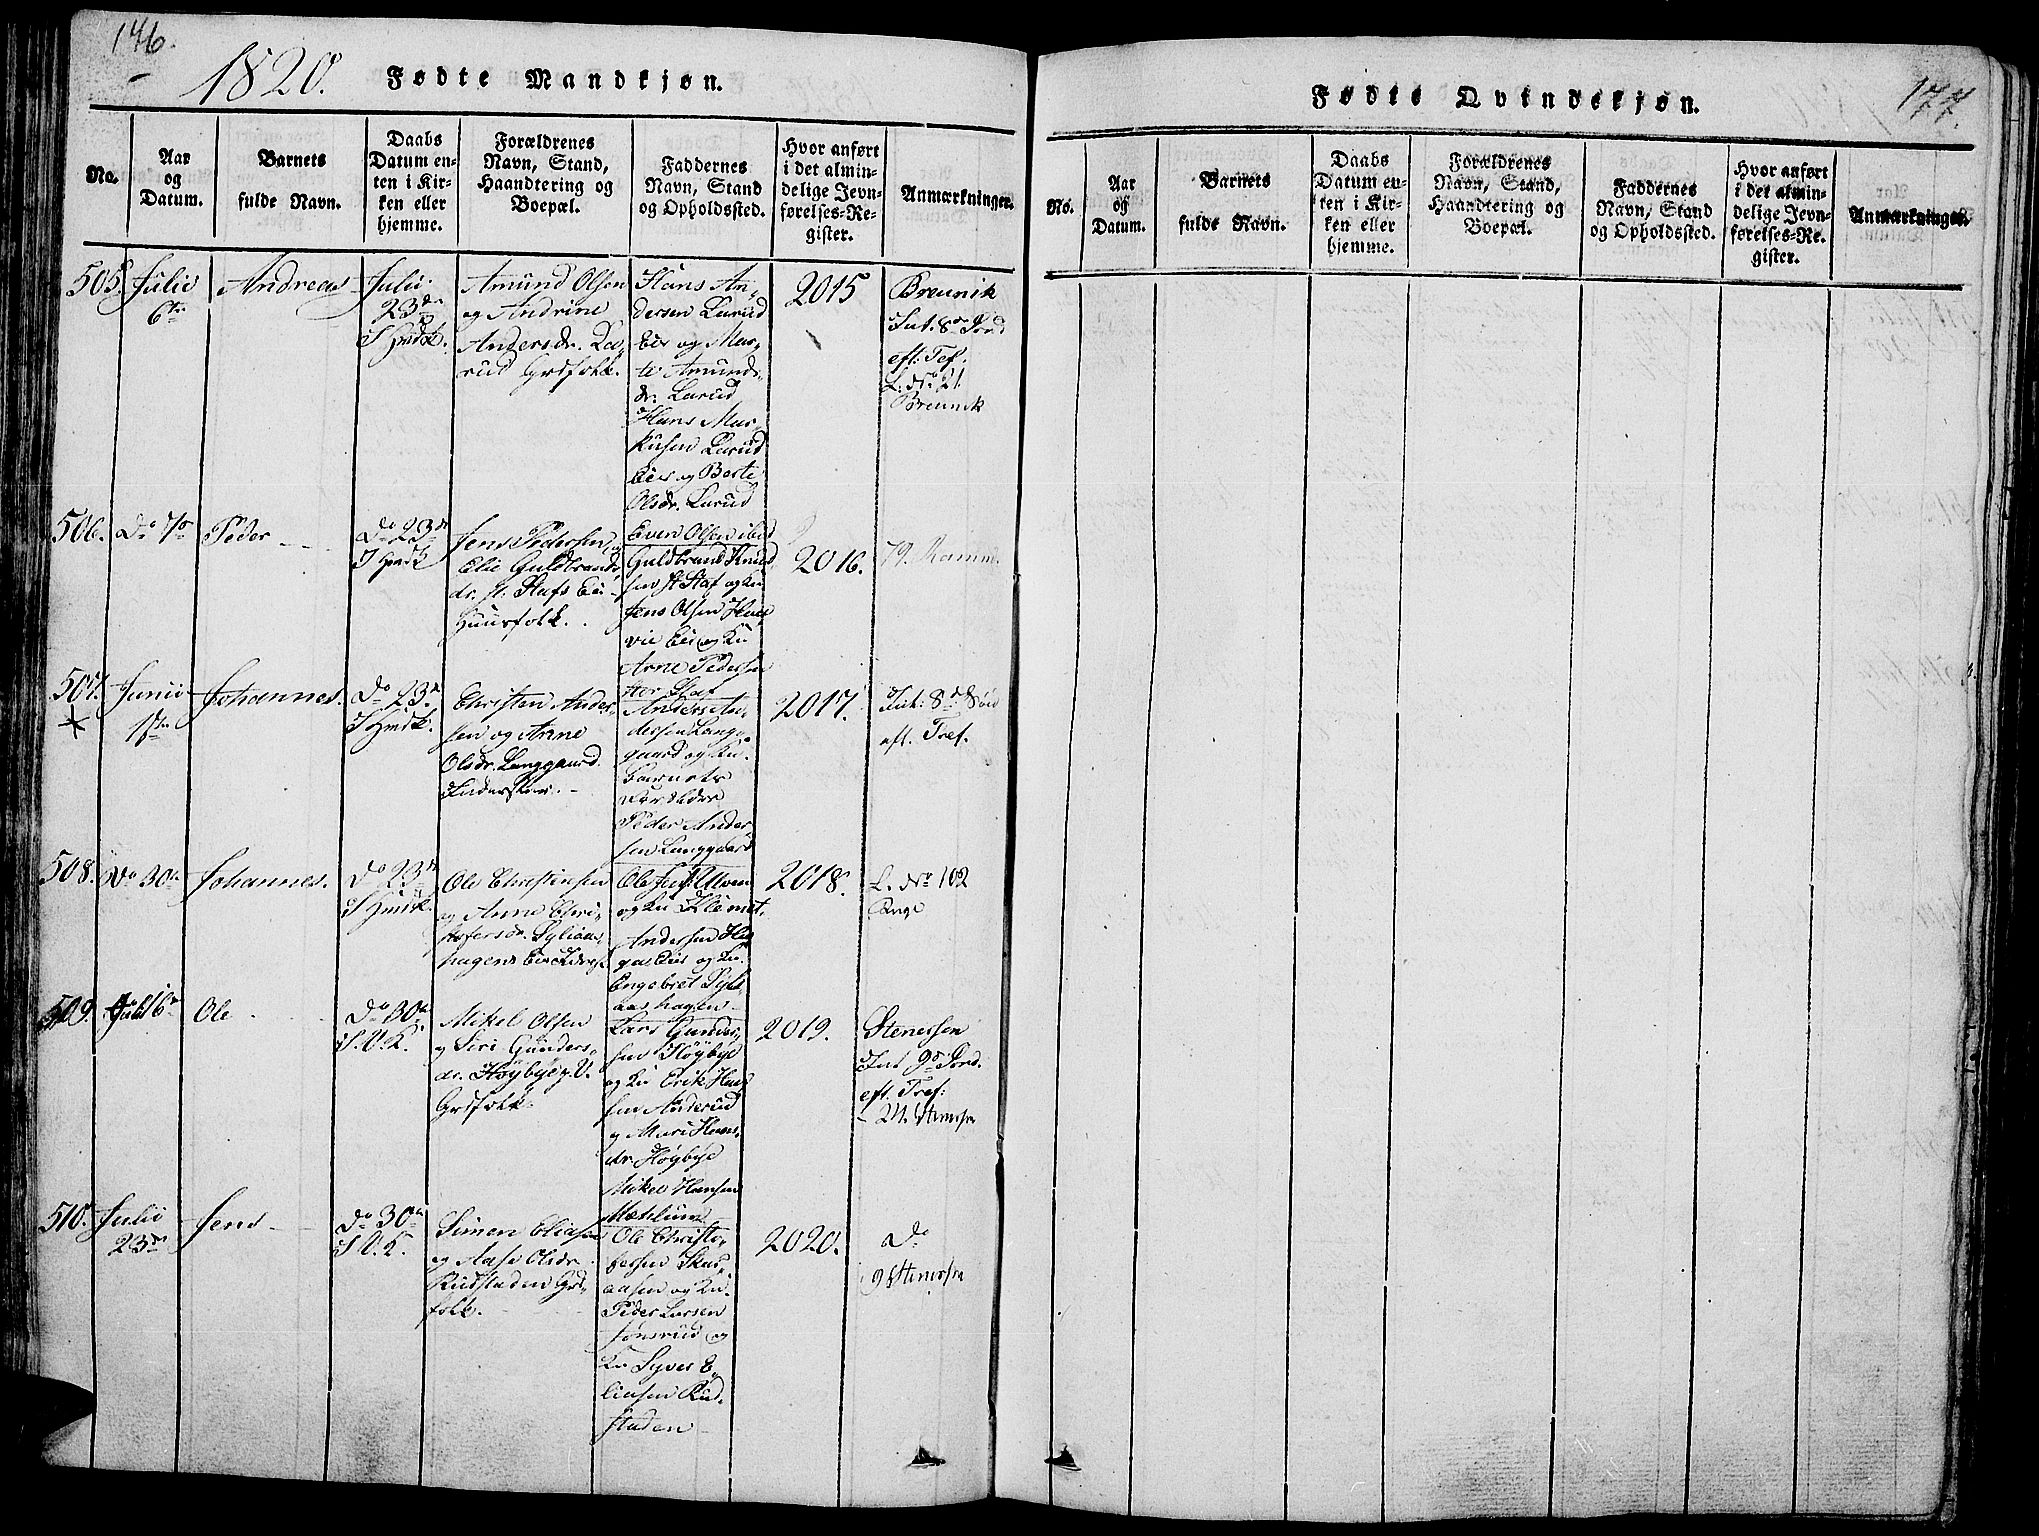 176.
1820. Fødte Mandkjøn.
No.
Aar
og
Datum.
Barnets
fulde Navn.
Daabs
Datum en-
ten i Kir-
ken eller
hjemme.
Forældrenes
Navn, Stand,
Haandtering og
Boepæl.
Faddernes
Navn, Stand
og Opholdssted.
Hvor anført
i det almin-
delige Jevn-
førelses-Re-
gister.
Anmærkninger.
505.
Julii
6te
Andreas
Julii
23de
Amund Olsen
og Andrine
Andersdr. La-
rud Grdfolk.
Hans An-
dersen Larud
Eie og Mar-
te Amunds-
dr. Larud
Hans Mar-
kusen Larud
Eie og Berte
Olsdr. Larud
Even Olsen ibid
2015
Breunik
Int: 8de Jord
eft: Tef:
L. No 21
Breunik
506.
Do 7de
Peder
Do 23de
Jens Pedersen og
Elie Guldbrands-
dr. St. Stafs Eie
Huusfolk.
Guldbrand Knud-
sen St. Staf og Ku
Jens Olsen
Eie og Ku
Arne Pedersen
Staf
2016.
507.
Junii
1ste
Johannes.
Do 23de
Christen Ander-
sen og Anne
Olsdr. Langgaard
Inderster.
Anders An-
dersen Lang-
gaard og Ku.
Barnets
Forældre
Peder Ander-
sen Langgaard
2017.
Int: 8de
eft. Tref.
508.
Do 30te
Johannes.
Do 23de
Ole Christensen
og Anne Chri-
stofersdr.
hagens
Ole Jens. Ulven
og Ku Klemet
Andersen
Eie og Ku.
Engebret
aashagen
2018.
L. No 102
509.
Ole
Do 30te
i V. K.
Mikel Olsen
og Siri Gunders-
dr. Høybye V.
Grdfolk
Lars Gunder-
sen Høybye
og Ku Erik Han-
sen Anderud
og Mari Hans-
dr. Høybye
Mikel Hansen
Mæhlum
2019.
Stenersen
Int 9de Jord.
eft. Tref:
24. Stenersen
510.
Julii
23de
Jens
Do 30te
I V. K.
Simen Eliasen
og Aase Olsdr.
Rudstaden Grd-
folk.
Ole Christo-
fersen Skur-
aasen og Ku.
Peder Larsen
Jønsrud og
Ku Syver E-
liasen Rud-
staden
2020.
Do
Stenersen
177.
Fødte Qvindekjøn.
No.
Aar
og
Datum.
Barnets
fulde Navn.
Daabs
Datum en-
ten i Kir-
ken eller
hjemme.
Forældrenes
Navn, Stand,
Haandtering og
Boepæl.
Faddernes
Navn, Stand
og Opholdssted.
Hvor anført
i det almin-
delige Jevn-
førelses-Re-
gister.
Anmærkninger.